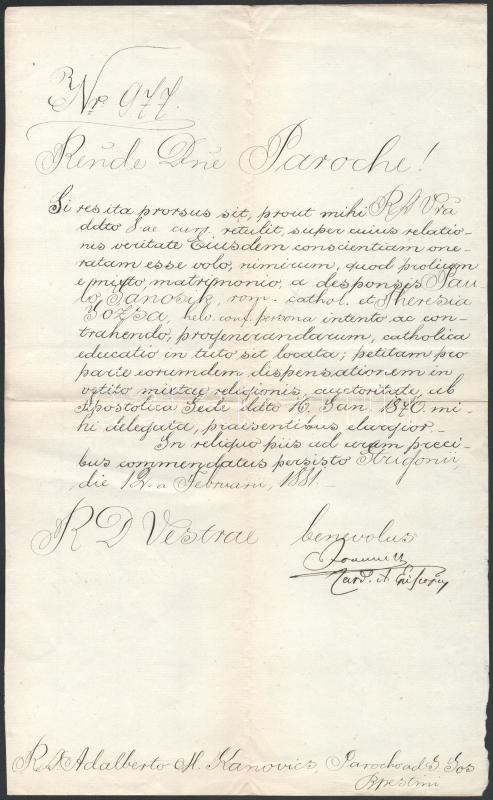 Nr. 977.
Rende Dne Paroche!
Si res ita prorsus sit, prout mihi R D Vra
ddto 8 ae curr. retulit, super cuius relatio-
nis veritate Eiusdem conscientiam one-
ratam esse volo, nimirum, quod prolium
e mixto, matrimonio, a desponsis Pau-
lo, Janosik, rom. cathol. et Theresia
Gozsa, helv. conf. persona intento ac con-
trahendo, progenerandarum, catholica
educatio in tuto sit locata; petitam pro
parte eorumdem dispensationem in
vetito mixtae religionis, auctoritate, ab
Apostolica Sede ddto 16. Jan. 1870 mi-
hi delegata, praesentibus elargior.—
In reliquo piis ad aram preci-
bus commendatus persisto Strigonii,
die 12-a Februarii, 1881.—
R D Vestrae benevolus
Joannes
Card. A Episcop
R. D. Adalberto M. Kanovics, Parocho ad S. Jos
Bpestini